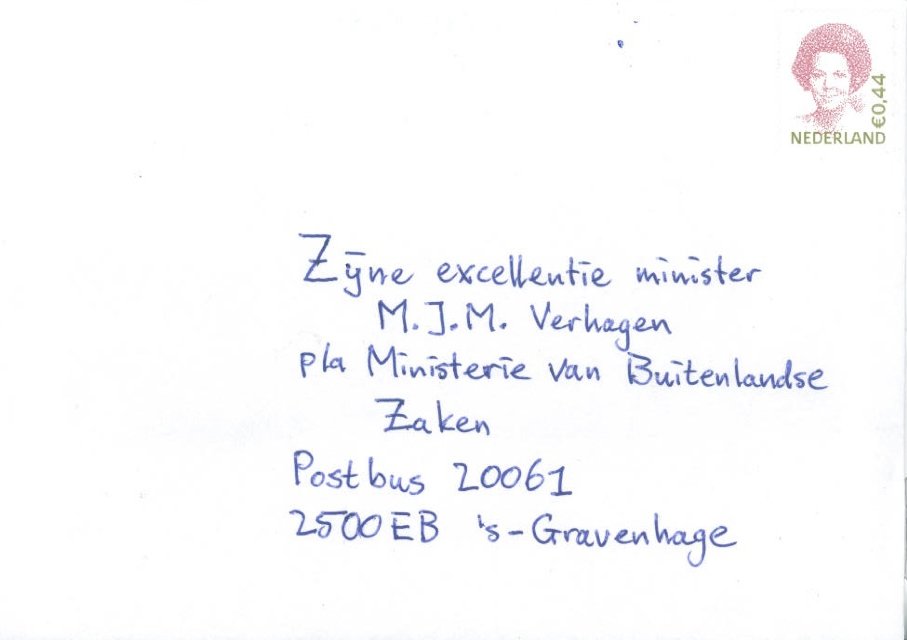 €0,44
NEDERLAND
Zijne excellentie minister
M.J.M. Verhagen
p/a Ministerie van Buitenlandse
Zaken
Postbus 20061
2500EB 's-Gravenhage